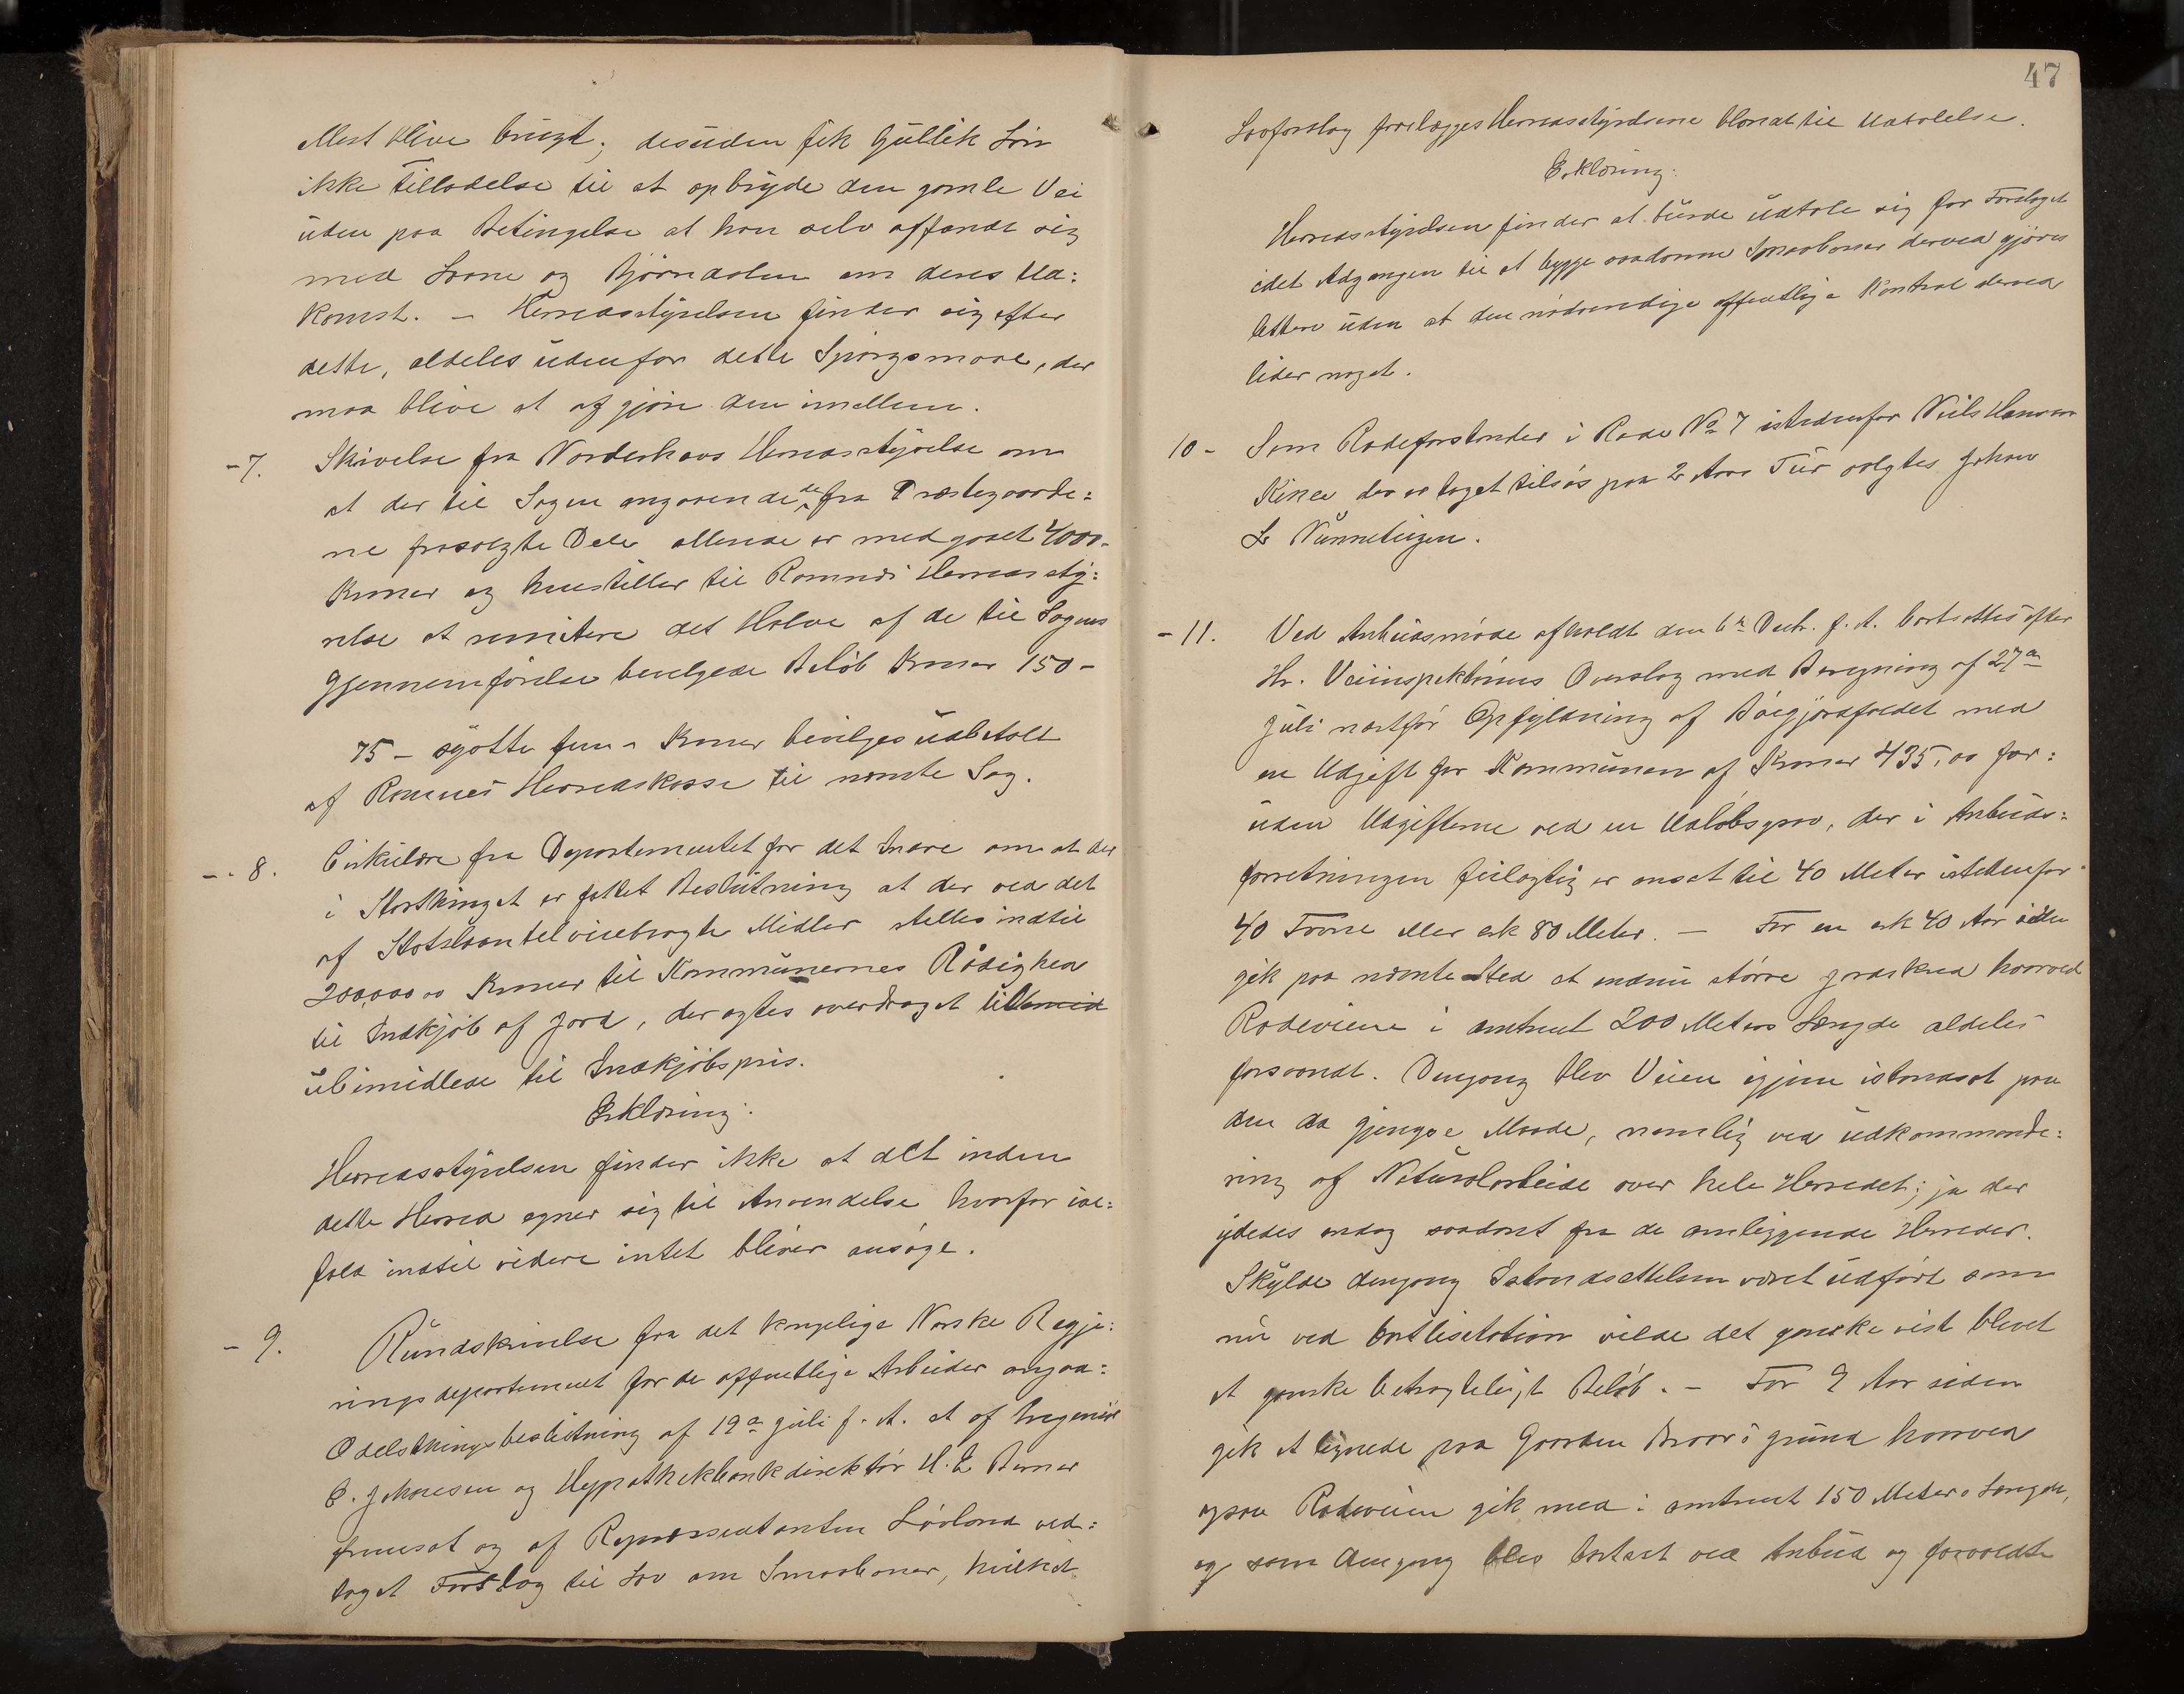 Mest blive brugt; desuden fik Gullik Lia
ikke Tilladelse til at opbryde den gamle Vei
uden paa Betingelse at han selv affandt sig
med Loone og Bjørndalen om deres Ud=
komst. – Herredsstyrelsen finder sig efter
dette, aldeles udenfor dette Spørgsmaal, der
maa blive at afgjøre dem imellem.
- 7. Skrivelse fra Norderhovs Herredsstyrelse om
at der til Sagen angaaende de fra Præstegaarde=
ne frasolgte Dele allerede er medgaaet 400,-
Kroner og henstiller til Romnæs Herredssty=
relse at remitere det Halve af de til Sagens
Gjennemførelse bevilgede Beløb Kroner 150 -
75 - sytti fem - Kroner bevilges udbetalt
af Romnes Herredskasse til nævnte Sag.
- 8. Cirkulære fra Departementet for det Indre om at der
i Storthinget er fattet Beslutning at der ved det
af Statslaan tilveiebragte Midler stilles indtil
200,000 00 Kroner til Kommunernes Rådighed
til Indkjøb af Jord, der agtes overdraget
ubimidlede til Indkjøbspris.
Erklæring:
Herredsstyrelsen finder ikke at det inden
dette Herred egner sig til Anvendelse hvorfor ial=
fald indtil videre intet bliver ansøgt.
- 9. Rundskrivelse fra det kongelige Norske Regje=
ringsdepartement for de offentlige Arbeider angaa=
Odelsthingsbeslutning af 19de Juli f. A. at af Ingeniør
C. Johnesen og Hypothekbankdirektør H. E. Berner
fremsat og af Repræsentanten Løvland ved=
taget Forslag til Lov om Smaabaner, hvilket
47
Lovforslag forelægges Herredsstyrelserne blandt til Udtalelse.
Erklæring:
Herredsstyrelsen finder at burde udtale sig for Forslaget
idet Adgangen til at bygge saadanne Smaabaner derved gjøres
lettere uden at den nødvendige offentlige Kontrol derved
lider noget.
10 - Som Rodeforstander i Rode No 7 istedenfor Niels Hansen
Kise der er taget tilsøs paa 2 Aars Tur valgtes Johan
L Nunneteigen.
- 11. Ved Anbudsmøde afholdt den 6te Decbr. f. A. bortsattes efter
Hr. Veiinspektørens Overslag med Beregning af 27de
Juli næstfør Opfyldning af Bøegjordfaldet med
en Udgift for Kommunen af Kroner 435,00 for=
uden Udgifterne ved en Udløbsgrav, der i Anbuds=
forretningen feilagtig er ansat til 40 Meter istedenfor
40 Favne eller ca 80 Meter. – For en ca 40 Aar siden
gik paa nævnte Sted et endnu større Jordskred hvorved
Rodeveiene i omtrent 200 Meters Længde aldeles
forsvandt. Dengang blev Veien igjen istandsat paa
den da gjengse Maade, nemlig ved udkommande=
ring af Naturalarbeide over hele Herredet; ja der
ydedes endog saadant fra de omliggende Herreder.
Skulde dengang Istandsættelsen været udført som
nu ved Bortlisitation vilde det ganske vist blevet
et ganske betragteligt Beløb. – For 9 Aar siden
gik et lignede paa Gaarden Braar's grund hvorved
ogsaa Rodeveien gik med i omtrent 150 Meters Længde,
og som dengang blev bortsat ved Anbud og forvoldte